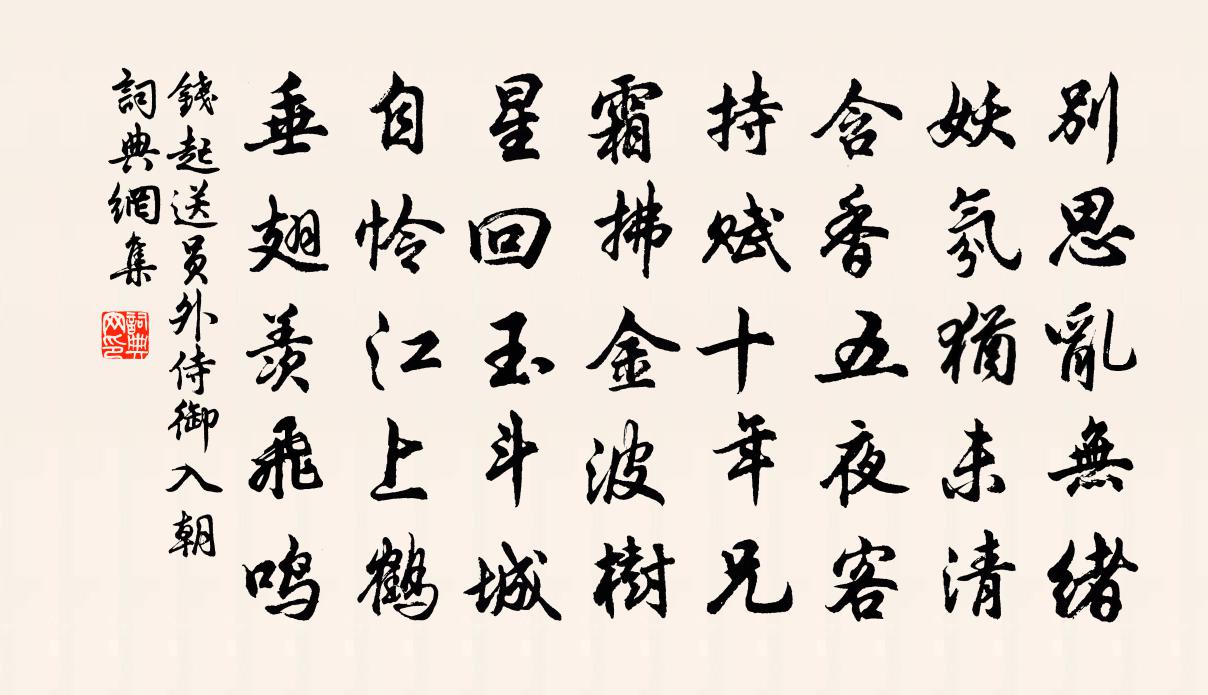 別思亂無緒
妖氛猶未清
含香五夜客
持賦十年兄
霜拂金波樹
星回玉斗城
自怜江上鶴
垂翅羨飛鸣
錢起送員外侍御入朝
詞典網集
詞典网印